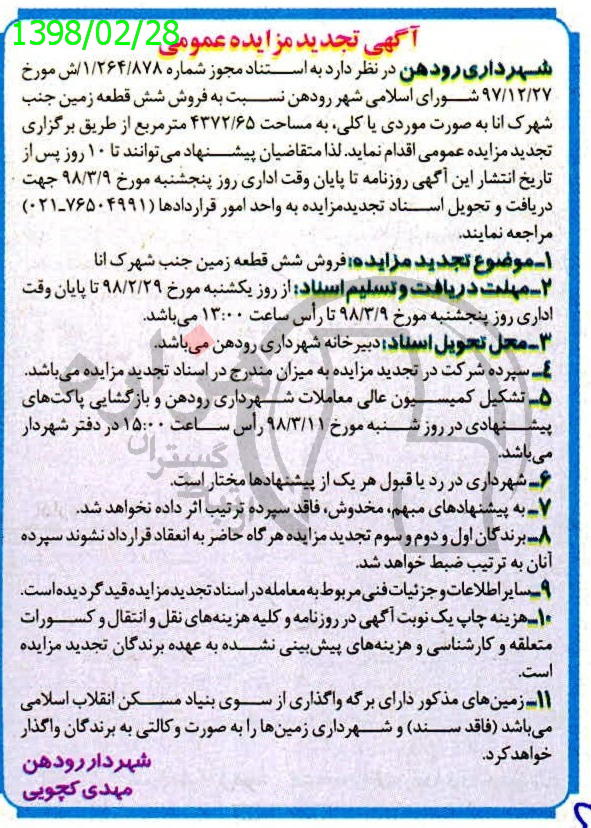 1398/02/28
آگهی تجدید مزایده عمومی
شهرداری رودهن در نظر دارد به استناد مجوز شماره ۱/۲۶۴/۸۷۸/ش مورخ
۹۷/۱۲/۲۷ شورای اسلامی شهر رودهن نسبت به فروش شش قطعه زمین جنب
شهرک انا به صورت موردی یا کلی، به مساحت ۴۳۷۲/۶۵ مترمربع از طریق برگزاری
تجدید مزایده عمومی اقدام نماید. لذا متقاضیان پیشنهاد می‌توانند تا ۱۰ روز پس از
تاریخ انتشار این آگهی روزنامه تا پایان وقت اداری روز پنجشنبه مورخ ۹۸/۳/۹ جهت
دریافت و تحویل اسناد تجدیدمزایده به واحد امور قراردادها (۷۶۵۰۴۹۹۱-۰۲۱)
مراجعه نمایند.
۱- موضوع تجدید مزایده: فروش شش قطعه زمین جنب شهرک انا
۲- مهلت دریافت و تسلیم اسناد: از روز یکشنبه مورخ ۹۸/۲/۲۹ تا پایان وقت
اداری روز پنجشنبه مورخ ۹۸/۳/۹ تا رأس ساعت ۱۳:۰۰ می‌باشد.
۳- محل تحویل اسناد: دبیرخانه شهرداری رودهن می‌باشد.
۴- سپرده شرکت در تجدید مزایده به میزان مندرج در اسناد تجدید مزایده می‌باشد.
۵- تشکیل کمیسیون عالی معاملات شهرداری رودهن و بازگشایی پاکت‌های
پیشنهادی در روز شنبه مورخ ۹۸/۳/۱۱ رأس ساعت ۱۵:۰۰ در دفتر شهردار
می‌باشد.
۶- شهرداری در رد یا قبول هر یک از پیشنهادها مختار است.
۷- به پیشنهادهای مبهم، مخدوش، فاقد سپرده ترتیب اثر داده نخواهد شد.
۸- برندگان اول و دوم و سوم تجدید مزایده هرگاه حاضر به انعقاد قرارداد نشوند سپرده
آنان به ترتیب ضبط خواهد شد.
۹- سایر اطلاعات و جزئیات فنی مربوط به معامله در اسناد تجدید مزایده قید گردیده است.
۱۰- هزینه چاپ یک نوبت آگهی در روزنامه و کلیه هزینه‌های نقل و انتقال و کسورات
متعلقه و کارشناسی و هزینه‌های پیش‌بینی نشده به عهده برندگان تجدید مزایده
است.
۱۱- زمین‌های مذکور دارای برگه واگذاری از سوی بنیاد مسکن انقلاب اسلامی
می‌باشد (فاقد سند) و شهرداری زمین‌ها را به صورت وکالتی به برندگان واگذار
خواهد کرد.
شهردار رودهن
مهدی کچویی